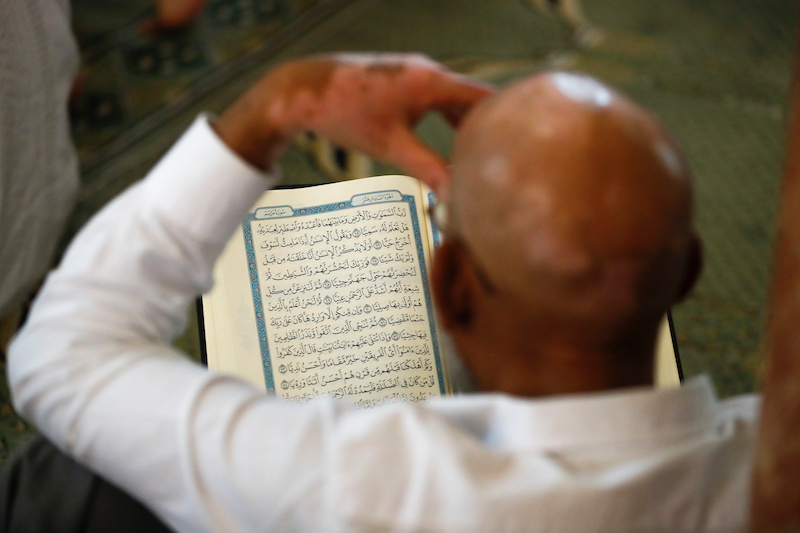 الجزء السادس عشر سورة مريم
رَّبُّ ٱلسَّمَٰوَٰتِ وَٱلْأَرْضِ وَمَا بَيْنَهُمَا فَٱعْبُدْهُ وَٱصْطَبِرْ لِعِبَٰدَتِهِۦ
هَلْ تَعْلَمُ لَهُۥ سَمِيًّا ٦٥ وَيَقُولُ ٱلْإِنسَٰنُ أَءِذَا مَا مِتُّ لَسَوْفَ
أُخْرَجُ حَيًّا ٦٦ أَوَلَا يَذْكُرُ ٱلْإِنسَٰنُ أَنَّا خَلَقْنَٰهُ مِن قَبْلُ
وَلَمْ يَكُ شَيْـًٔا ٦٧ فَوَرَبِّكَ لَنَحْشُرَنَّهُمْ وَٱلشَّيَٰطِينَ ثُمَّ
لَنُحْضِرَنَّهُمْ حَوْلَ جَهَنَّمَ جِثِيًّا ٦٨ ثُمَّ لَنَنزِعَنَّ مِن كُلِّ
شِيعَةٍ أَيُّهُمْ أَشَدُّ عَلَى ٱلرَّحْمَٰنِ عِتِيًّا ٦٩ ثُمَّ لَنَحْنُ أَعْلَمُ بِٱلَّذِينَ
هُمْ أَوْلَىٰ بِهَا صِلِيًّا ٧٠ وَإِن مِّنكُمْ إِلَّا وَارِدُهَا كَانَ عَلَىٰ رَبِّكَ
حَتْمًا مَّقْضِيًّا ٧١ ثُمَّ نُنَجِّى ٱلَّذِينَ ٱتَّقَوا۟ وَّنَذَرُ ٱلظَّٰلِمِينَ
فِيهَا جِثِيًّا ٧٢ وَإِذَا تُتْلَىٰ عَلَيْهِمْ ءَايَٰتُنَا بَيِّنَٰتٍ قَالَ ٱلَّذِينَ كَفَرُوا۟
لِلَّذِينَ ءَامَنُوٓا۟ أَىُّ ٱلْفَرِيقَيْنِ خَيْرٌ مَّقَامًا وَأَحْسَنُ نَدِيًّا ٧٣
وَكَمْ أَهْلَكْنَا قَبْلَهُم مِّن قَرْنٍ هُمْ أَحْسَنُ أَثَٰثًا وَرِءْيًا ٧٤
قُلْ مَن كَانَ فِى ٱلضَّلَٰلَةِ فَلْيَمْدُدْ لَهُ